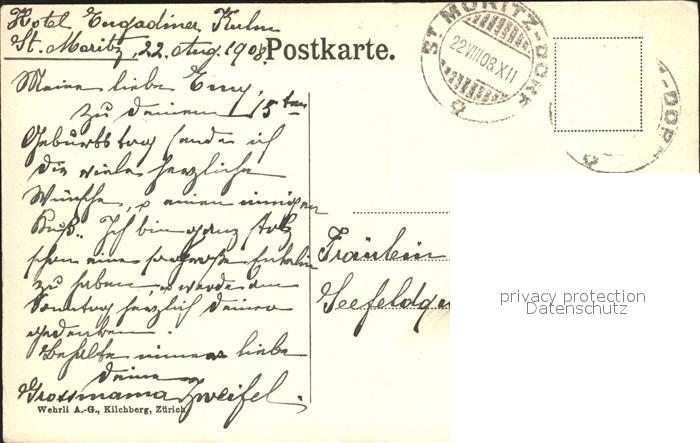 Hotel Engadiner Kulm
St. Moritz, 22. Aug. 1908
Postkarte.
ST. MORITZ-DORF
22.VIII.08.XII
Z-DORF
Meine liebe Emy,
zu deinem 15ten
Geburtstag sende ich
dir viele herzliche
Wünsche, & einen innigen
Kuß. Ich bin ganz stolz
schon eine so große Enkelin
zu haben, & werde am
Sonntag herzlich deiner
gedenken.
Behalte immer liebe
deine
Grossmama Zweifel.
Fräulein
Seefeldg
privacy protection
Datenschutz
Wehrli A.-G., Kilchberg, Zürich